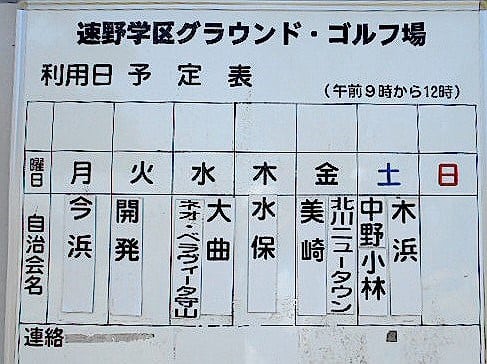 速野学区グラウンド・ゴルフ場
利用日予定表
(午前9時から12時)
曜日 月 火 水 木 金 土 日
自治会名
今浜
開発
大曲
ネオ・ベラヴィータ守山
水保
美崎
北川ニュータウン
木浜
中野小林
連絡